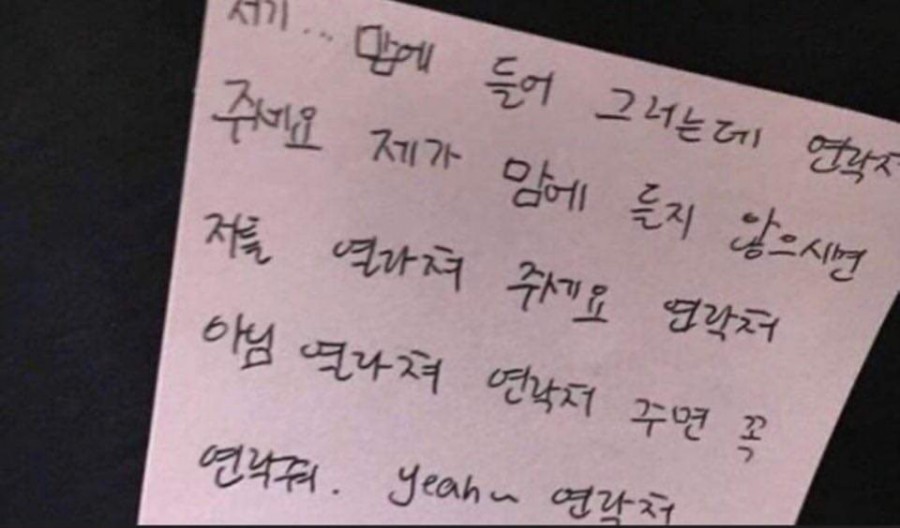 저기... 맘에 들어 그러는데 연락처
주세요 제가 맘에 들지 않으시면
저를 열라쳐 주세요 연락처
아님 열라쳐 연락처 주면 꼭
연락줘. yeah~ 연락처